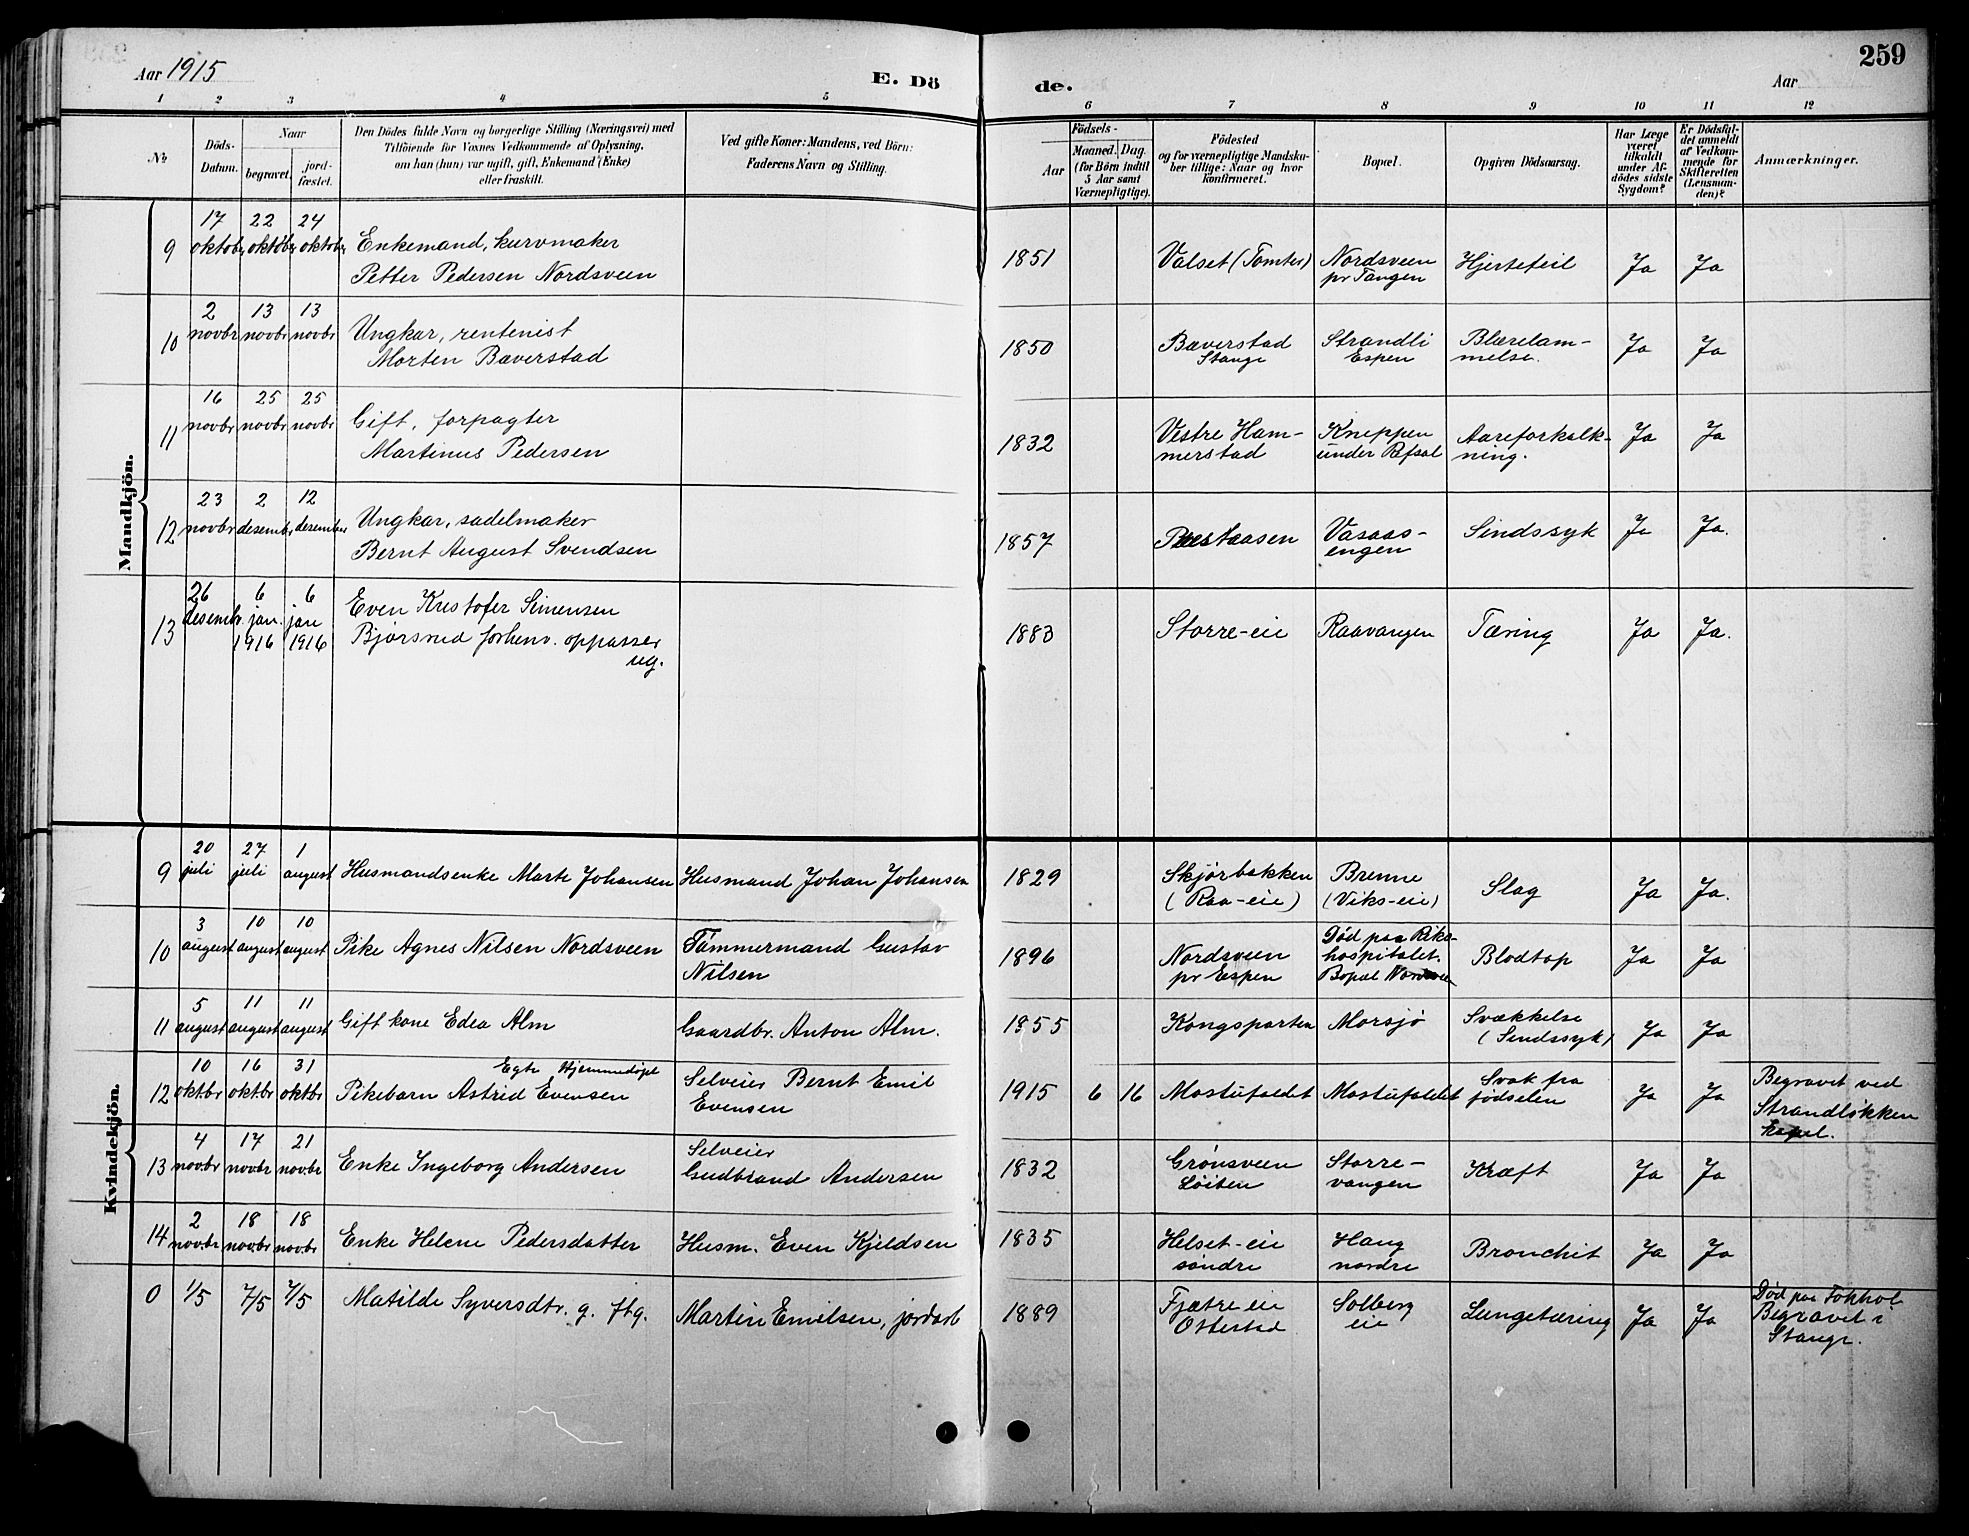 Aar 1915
E. Dö
de.
Aar
259
1 2 3 4 5 6 7 8 9 10 11 12
No
Döds-
Datum.
Naar
begravet.
jord-
fæstet.
Den Dödes fulde Navn og borgerlige Stilling (Næringsvei) med
Tilföiende for Voxnes Vedkommende af Oplysning,
om han (hun) var ugift, gift, Enkemand (Enke)
eller fraskilt.
Ved gifte Koner: Mandens, ved Börn:
Faderens Navn og Stilling.
Födsels-
Aar
Maaned.
Dag.
(for Börn indtil
5 Aar samt
Værnepligtige).
Födested
og for værnepligtige Mandska-
ber tillige: Naar og hvor
konfirmeret.
Bopæl.
Opgiven Dödsaarsag.
Har Læge
været
tilkaldt
under Af-
dödes sidste
Sygdom?
Er Dödsfal-
det anmeldt
af Vedkom-
mende for
Skifteretten
(Lensman-
den)?
Anmærkninger.
Mandkjön.
9
17 oktobr
22 oktobr
24 oktobr
Enkemand, kurvmaker
Petter Pedersen Nordsveen
1851
Valset (Tomter)
Nordsveen
pr Tangen
Hjertefeil
Ja
Ja
10
2 novbr
13 novbr
13 novbr
Ungkar, rentenist
Morten Bæverstad
1850
Bæverstad
Stange
Strandli
Espen
Blærelam-
melse.
Ja
Ja
11
16 novbr
25 novbr
25 novbr
Gift, forpagter
Martinus Pedersen
1832
Vestre Ham-
merstad
Kneppen
under Refsal
Aareforkalk-
ning.
Ja
Ja
12
23 novbr
2 desembr
12 desember
Ungkar, sadelmaker
Bernt August Svendsen
1857
Vasaas-
engen
Sindssyk
Ja
Ja.
13
26 desembr.
6 jan. 1916
6 jan 1916
Even Kristofer Simensen
Bjørsrud forhenv. oppasser
ug.
1883
Storre-eie
Raavangen
Tæring
Ja
Ja.
Kvindekjön.
9
20 juli
27 juli
1 august
Husmandsenke Marte Johansen
Husmand Johan Johansen
1829
Skjørbakken
(Raa-eie)
Brenne
(Viks-eie)
Slag
Ja
Ja.
10
3 august
10 august
10 august
Pike Agnes Nilsen Nordsveen
Tømmermand Gustav
Nilsen
1896
Nordsveen
pr Espen
Død paa Riks-
hospitalet.
Bopæl Nordsveen
Blodtop
Ja
Ja
11
5 august
11 august
11 august
Gift kone Edea Alm
Gaardbr. Anton Alm.
1855
Kongsparten
Morsjø
Svækkelse
(Sindssyk)
Ja
Ja
12
10 oktbr
16 oktbr
31 oktbr
Egte Hjemmedøpt
Pikebarn Astrid Evensen
Selveier Bernt Emil
Evensen
1915
6
16
Mostufaldet
Mostufaldet
Svak fra
fødselen
Ja
Ja
Begravet ved
Strandløkken
kapel.
13
4 novbr
17 novbr
21 novbr
Enke Ingeborg Andersen
Selveier
Gudbrand Andersen
1832
Grønsveen
Løiten
Storre-
vangen
Kræft
Ja
Ja
14
2 novbr
18 novbr
18 novbr
Enke Helene Pedersdatter
Husm. Even Kjeldsen
1835
Helset-eie
søndre
Haug
nordre
Bronchit
Ja
Ja
0
1/5
7/5
7/5
Matilde Syversdtr. g. ftg.
Martin Emilsen, jordarb
1889
Fjætre eie
Ottestad
Solberg
eie
Lungetæring
Ja
Ja
Død paa Fokhol
Begravet i
Stange.